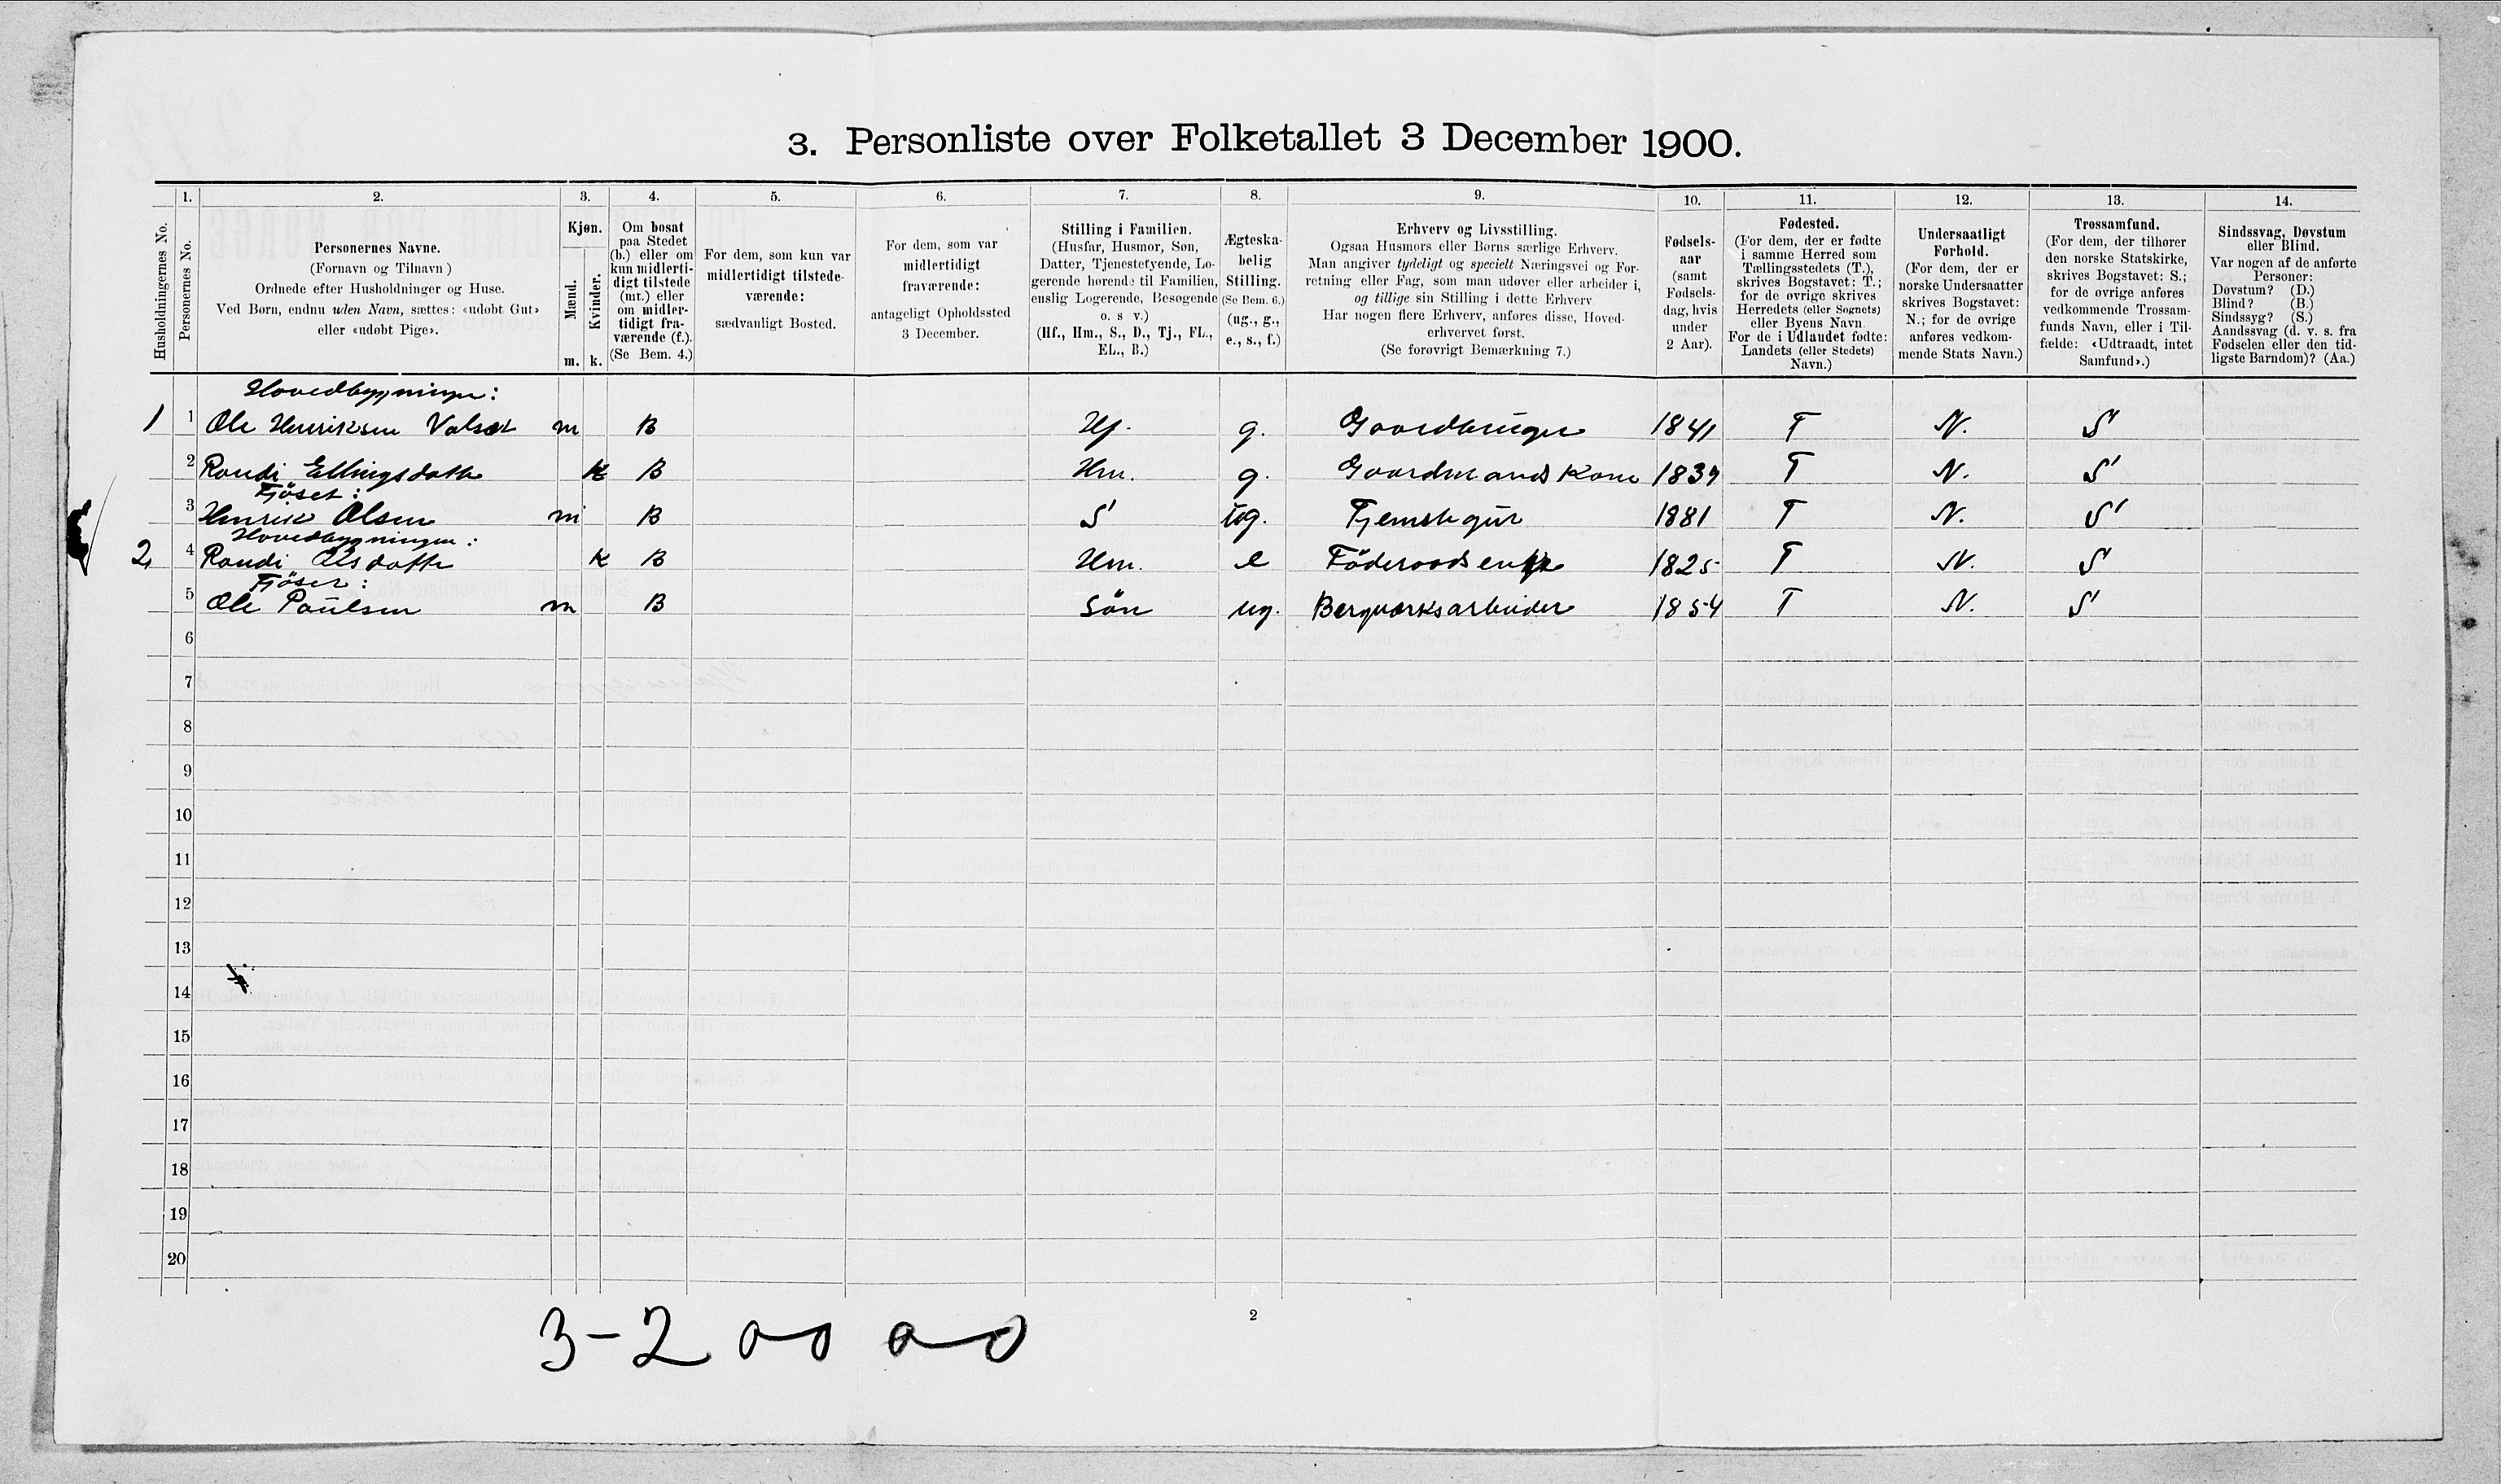 3. Personliste over Folketallet 3 December 1900.
1. 2. 3. 4. 5. 6. 7. 8. 9. 10. 11. 12. 13. 14.
Husholdningernes No.
Personernes No.
Personernes Navne.
(Fornavn og Tilnavn)
Ordnede efter Husholdninger og Huse.
Ved Børn, endnu uden Navn, sættes: «udøbt Gut»
eller «udøbt Pige».
Kjøn.
Mænd.
Kvinder.
m. k.
Om bosat
paa Stedet
(b.) eller om
kun midlerti-
digt tilstede
(mt.) eller
om midler-
tidigt fra-
værende (f.).
(Se Bem. 4.)
For dem, som kun var
midlertidigt tilstede-
værende:
sædvanligt Bosted.
For dem, som var
midlertidigt
fraværende:
antageligt Opholdssted
3 December.
Stilling i Familien.
(Husfar, Husmor, Søn,
Datter, Tjenestetyende, Lo-
gerende hørende til Familien,
enslig Logerende, Besøgende
o. s v.)
(Hf., Hm., S., D., Tj., FL.,
EL., B.)
Ægteska-
belig
Stilling.
(Se Bem. 6.)
(ug., g.,
e., s., f.)
Erhverv og Livsstilling.
Ogsaa Husmors eller Børns særlige Erhverv.
Man angiver tydeligt og specielt Næringsvei og For-
retning eller Fag, som man udøver eller arbeider i,
og tillige sin Stilling i dette Erhverv.
Har nogen flere Erhverv, anføres disse, Hoved-
erhvervet først.
(Se forøvrigt Bemærkning 7.)
Fødsels-
aar
(samt
Fødsels-
dag, hvis
under
2 Aar).
Fødested.
(For dem, der er fødte
i samme Herred som
Tællingsstedets (T.),
skrives Bogstavet: T.;
for de øvrige skrives
Herredets (eller Sognets)
eller Byens Navn.
For de i Udlandet fødte:
Landets (eller Stedets)
Navn.)
Undersaatligt
Forhold.
(For dem, der er
norske Undersaatter
skrives Bogstavet:
N.; for de øvrige
anføres vedkom-
mende Stats Navn.)
Trossamfund.
(For dem, der tilhører
den norske Statskirke,
skrives Bogstavet: S.;
for de øvrige anføres
vedkommende Trossam-
funds Navn, eller i Til-
fælde: «Udtraadt, intet
Samfund».)
Sindssvag, Døvstum
eller Blind.
Var nogen af de anførte
Personer:
Døvstum? (D.)
Blind? (B.)
Sindssyg? (S.)
Aandssvag (d. v. s. fra
Fødselen eller den tid-
ligste Barndom)? (Aa.)
Hovedbygningen:
1 1 Ole Henriksen Valset m B Hf. g. Gaardbruger 1841 T N. S
2 Randi Ellingsdatter k B Hm. g. Gaardmands Kone 1839 T N. S
Fjöset:
3 Henrik Olsen m B S ug. Tjenestegut 1881 T N. S
Hovedbygningen:
2, 4 Randi Olsdatter k B Hm. e Föderaadsenke 1825 T N. S
Fjöset:
5 Ole Paulsen m B Sön ug. Bergværksarbeider 1854 T N. S
6
7
8
9
10
11
12
13
14
15
16
17
18
19
20
2
3-2